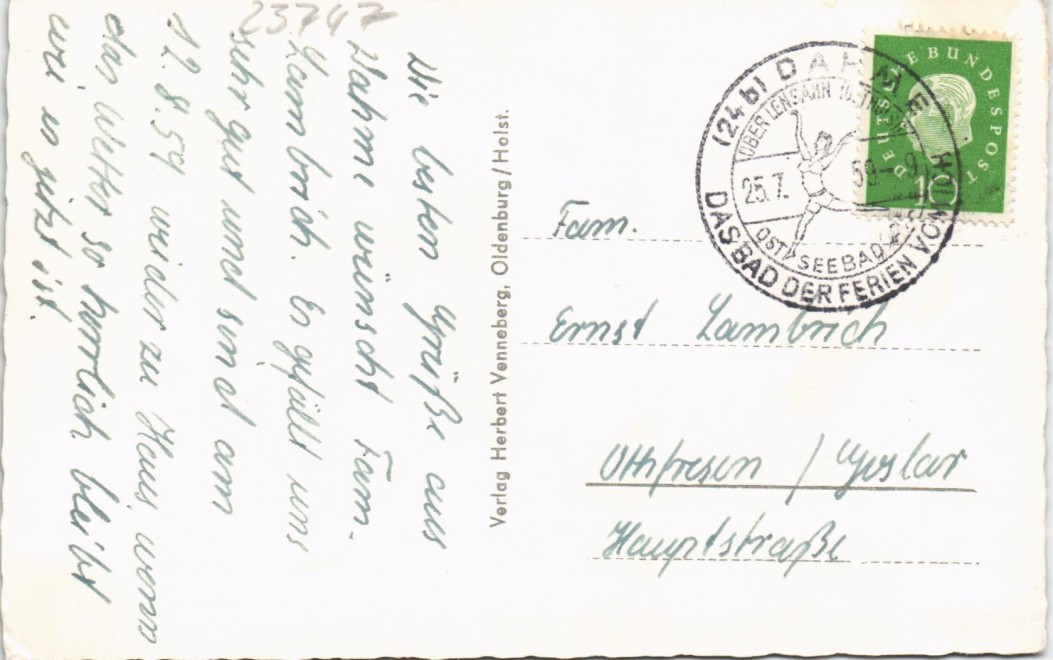 23747
Die besten Grüße aus
Dahme wünscht Fam.
Lambrich. Es gefällt uns
sehr gut und sind am
12.8.59 wieder zu Haus, wenn
das Wetter so herrlich bleibt
wie es jetzt ist.
Verlag Herbert Venneberg, Oldenburg/Holst.
DEUTSCHE BUNDESPOST
10
(24b) DAHME
ÜBER LENSAHN (OSTHOLST)
25.7. 59.- 9
OSTSEEBAD
DAS BAD DER FERIEN VON
Fam.
Ernst Lambrich
Othfresen / Goslar
Hauptstraße